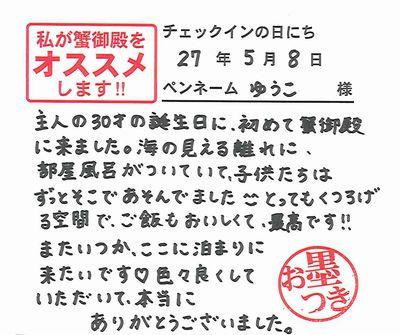 私が蟹御殿を
オススメ
します!!
チェックインの日にち
27 年 5 月 8 日
ペンネーム ゆうこ 様
主人の30才の誕生日に、初めて蟹御殿
に来ました。海の見える離れに、
部屋風呂がついていて、子供たちは
ずっとそこであそんでました とってもくつろげ
る空間で、ご飯もおいしくて、最高です!!
またいつか、ここに泊まりに
来たいです♡色々良くして
いただいて、本当に
ありがとうございました。
お墨つき